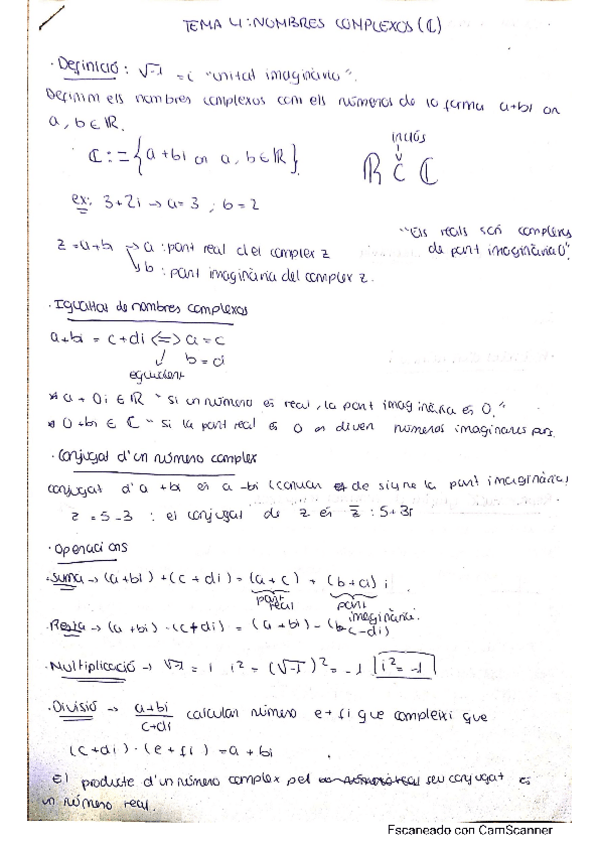 TEMA 4: NOMBRES COMPLEXOS (ℂ)
· Definició: √-1 = i "unitat imaginària".
Definim els nombres complexos com els números de la forma a+bi on
a, b ∈ ℝ.
ℂ := {a + bi on a, b ∈ ℝ}
inclòs
ℝ ⊂ ℂ
ex: 3+2i → a=3 ; b=2
"Els reals són complexos
de part imaginària 0".
z = a+bi → a : part real del complex z
↘ b : part imaginària del complex z.
· Igualtat de nombres complexos
a+bi = c+di <=> a=c
b=d
equivalent
* a + 0i ∈ ℝ " si un número és real, la part imaginària és 0."
* 0+bi ∈ ℂ " si la part real és 0 es diuen números imaginaris purs.
· Conjugat d'un número complex
conjugat d'a +bi és a -bi (canviar de signe la part imaginària)
z = 5-3 : el conjugat de z és z̅ : 5+3i
· Operacions
· Suma → (a+bi) + (c+di) = (a+c) + (b+d) i
part real
part imaginària.
· Resta → (a+bi) - (c+di) = (a+bi) - (c-di)
· Multiplicació → √-1 = i i² = (√-1)² = -1 i² = -1
· Divisió → a+bi / c+di calcular número e+fi que compleixi que
(c+di) · (e+fi) = a+bi
El producte d'un número complex pel seu conjugat és
un número real.
Escaneado con CamScanner